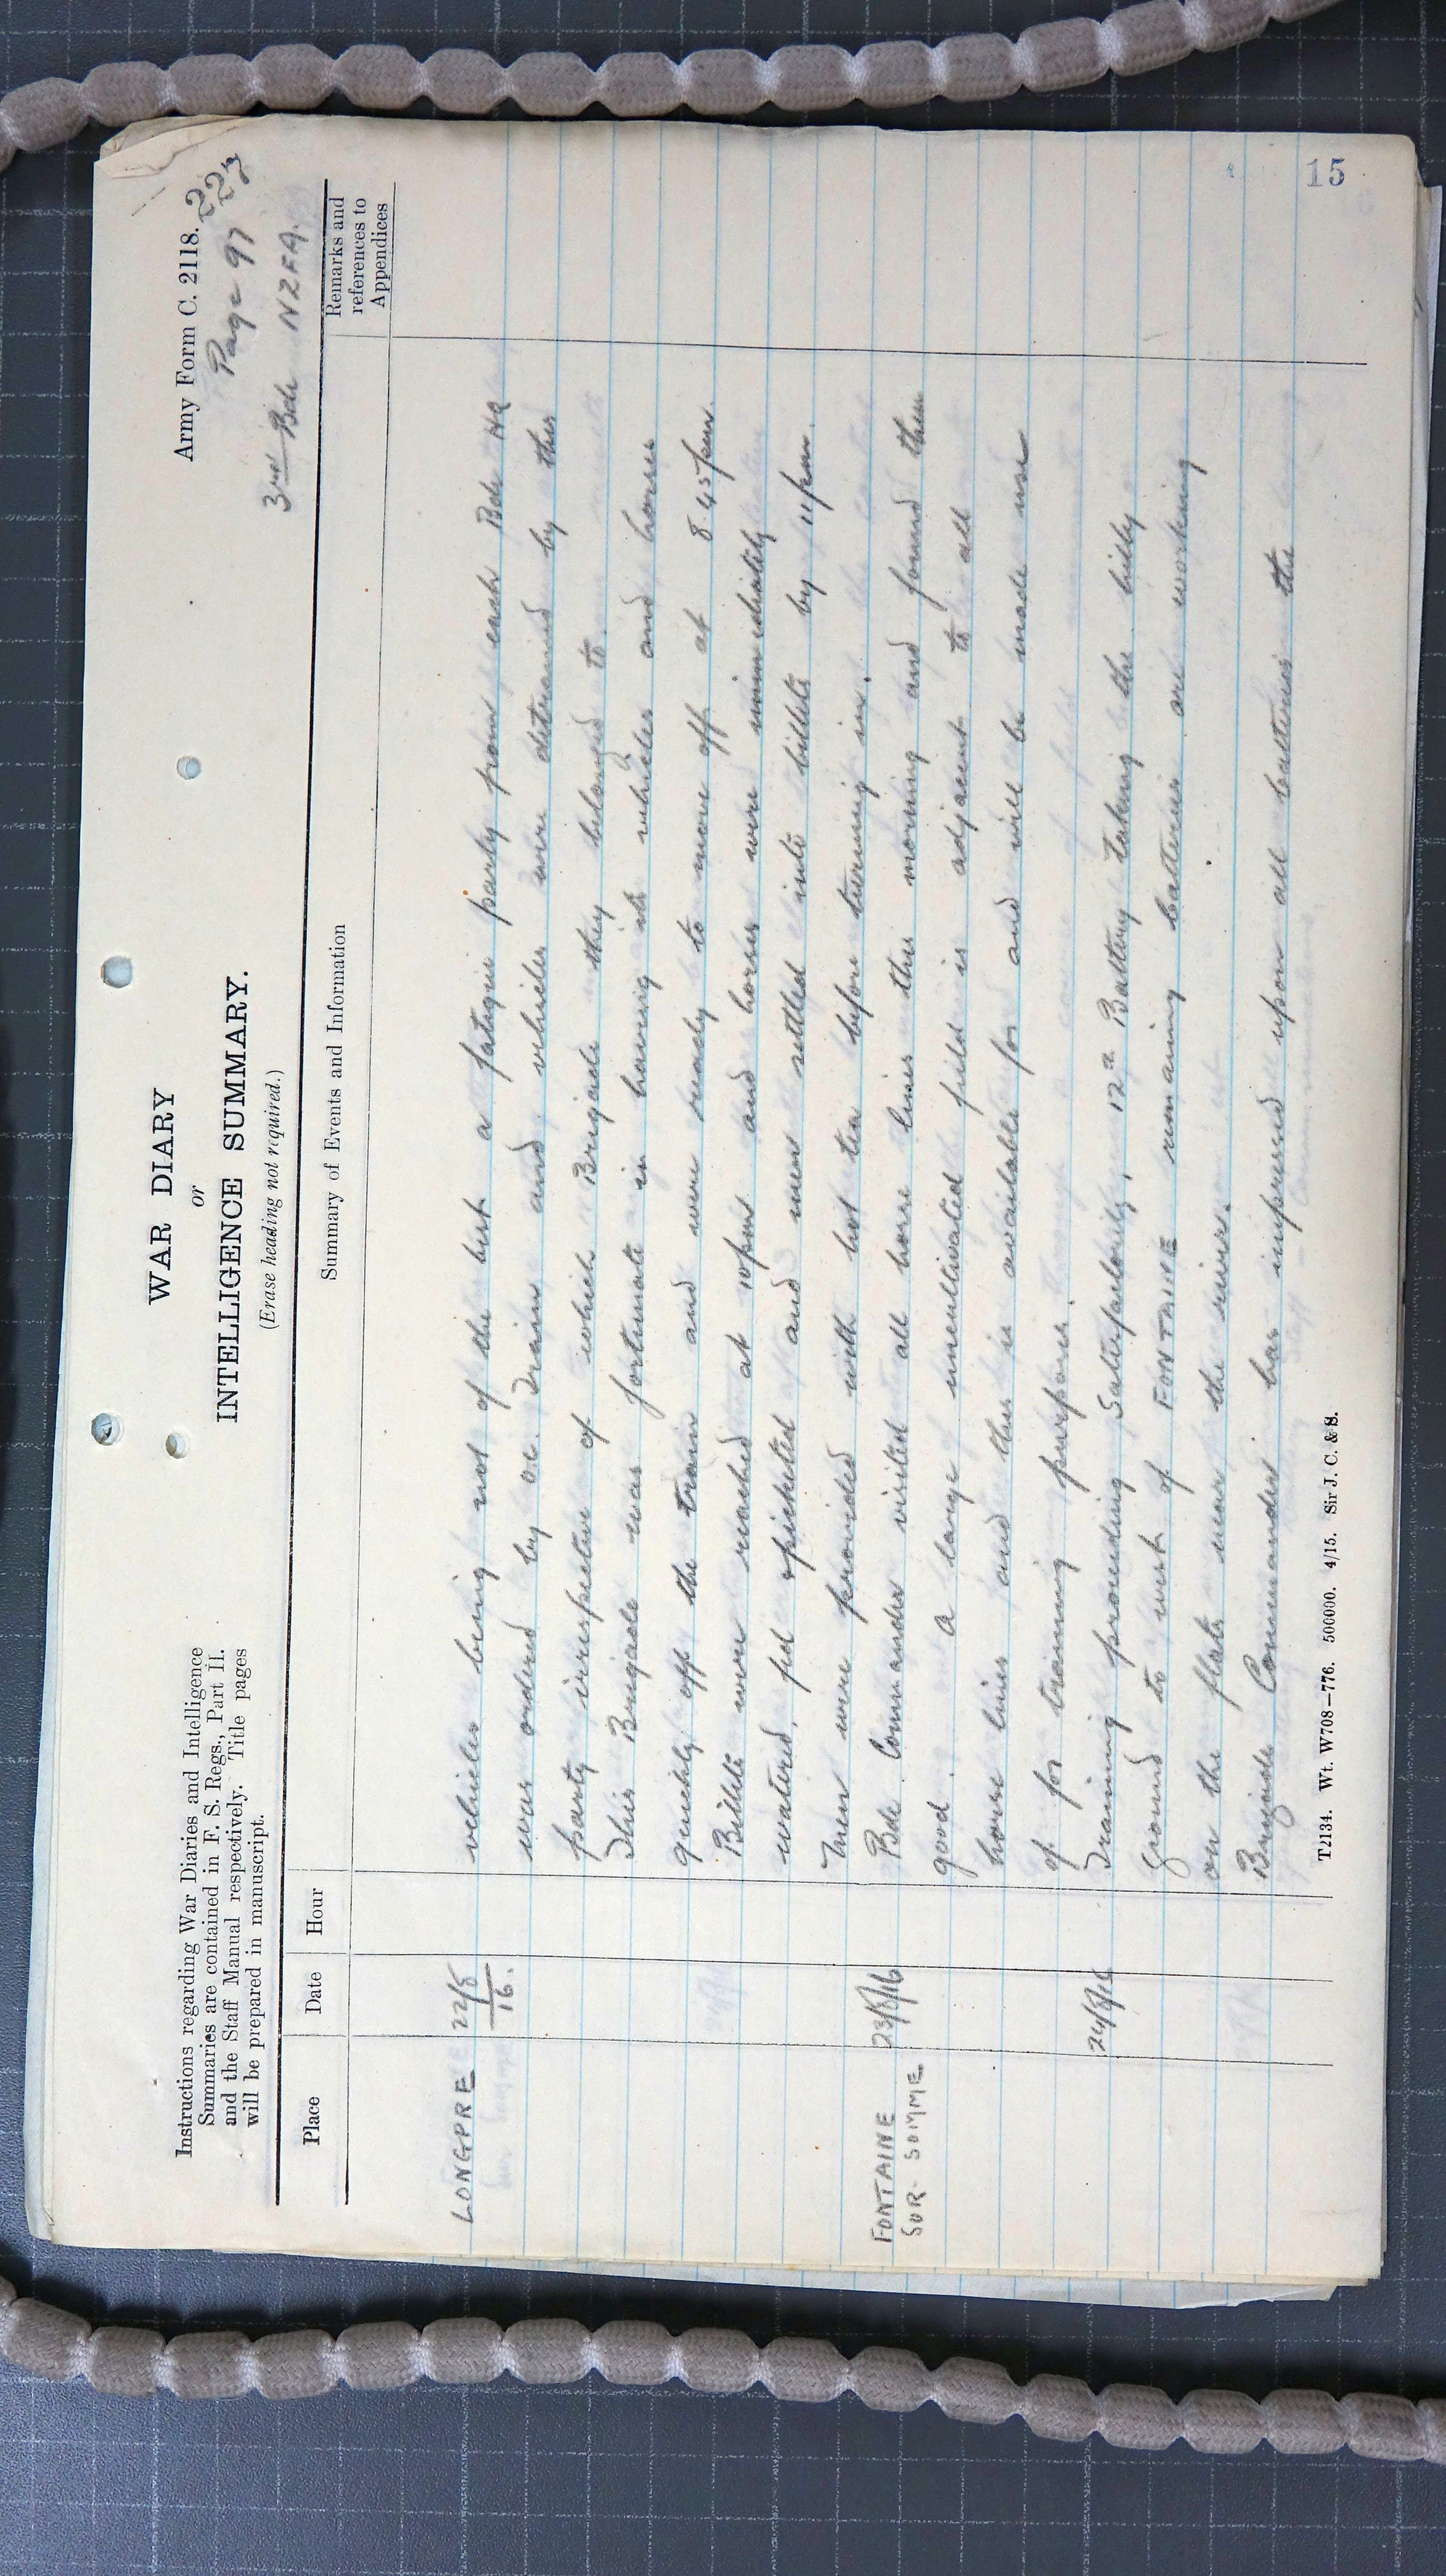 Army Form C. 2118.
227
Page 97
3rd Bde NZFA.
WAR DIARY
or
INTELLIGENCE SUMMARY.
(Erase heading not required.)
Instructions regarding War Diaries and Intelligence
Summaries are contained in F. S. Regs., Part II.
and the Staff Manual respectively. Title pages
will be prepared in manuscript.
Place Date Hour Summary of Events and Information Remarks and references to Appendices
LONGPRE 22/8/16. vehicles being not of the but a fatigue party from each Bde HQ
was ordered by o.c. Train and vehicles were detrained by this
party irrespective of which Brigade they belonged to.
This Brigade was fortunate in having its vehicles and horses
quickly off the train and were ready to move off at 8.45 pm.
Billets were reached at 10 pm and horses were immediately
watered, fed & picketed and men settled into billets by 11 pm.
Men were provided with hot tea before turning in.
FONTAINE SUR-SOMME 23/8/16 Bde Commander visited all horse lines this morning and found them
good. A large uncultivated field is adjacent to all
horse lines and this is available for and will be made use
of for training purposes.
24/8/16 Training proceeding satisfactorily, 12th Battery taking the hilly
ground to west of FONTAINE remaining batteries are working
on the flats near the river.
Brigade Commander has impressed upon all batteries the
T2134. Wt. W708—776. 500000. 4/15. Sir J. C. & S.
15